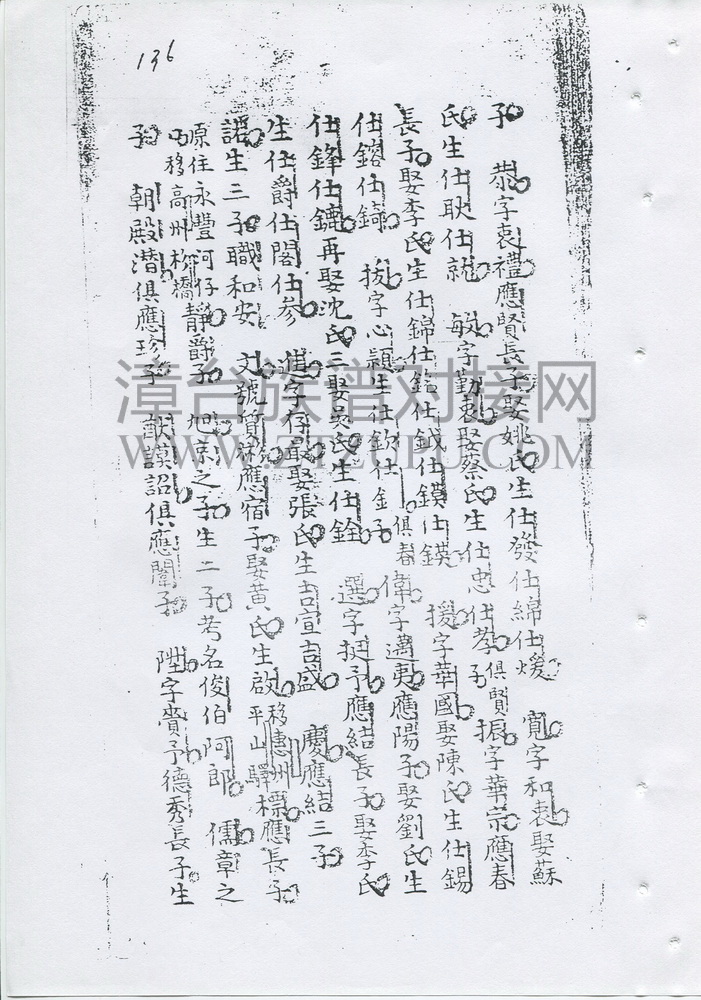 136
子 恭字衷禮應賢長子娶姚氏生仕發仕綿仕煖 寬字和衷娶蘇
氏生仕耿仕就 敏字勤衷娶蔡氏生仕忠仕孝子俱賢 振字華宗應春
長子娶李氏生仕錦仕銘仕鉞仕鍈仕鏌 援字華國娶陳氏生仕錫
仕鎔仕錡 拔字心穎生仕欽仕金子俱春 偉字邁夷應陽子娶劉氏生
仕鋒仕鏕再娶沈氏三娶吳氏生仕銓 選字挺予應結長子娶李氏
生仕爵仕閣仕参 進字存取娶張氏生吉宣吉盛 慶應結三子
諾生三子職和安 文號質 應宿子娶黃氏生啟移惠州平山驛 標應長子
原住永豐河仔乃移高州松橋 靜爵子 旭京之子生二子考名俊伯阿郎 儒章之
子 朝殿潛俱應珍子 猷謨詔俱應闈子 陞字賡予德秀長子生
漳台族谱对接网
WWW.ZTZUPU.COM